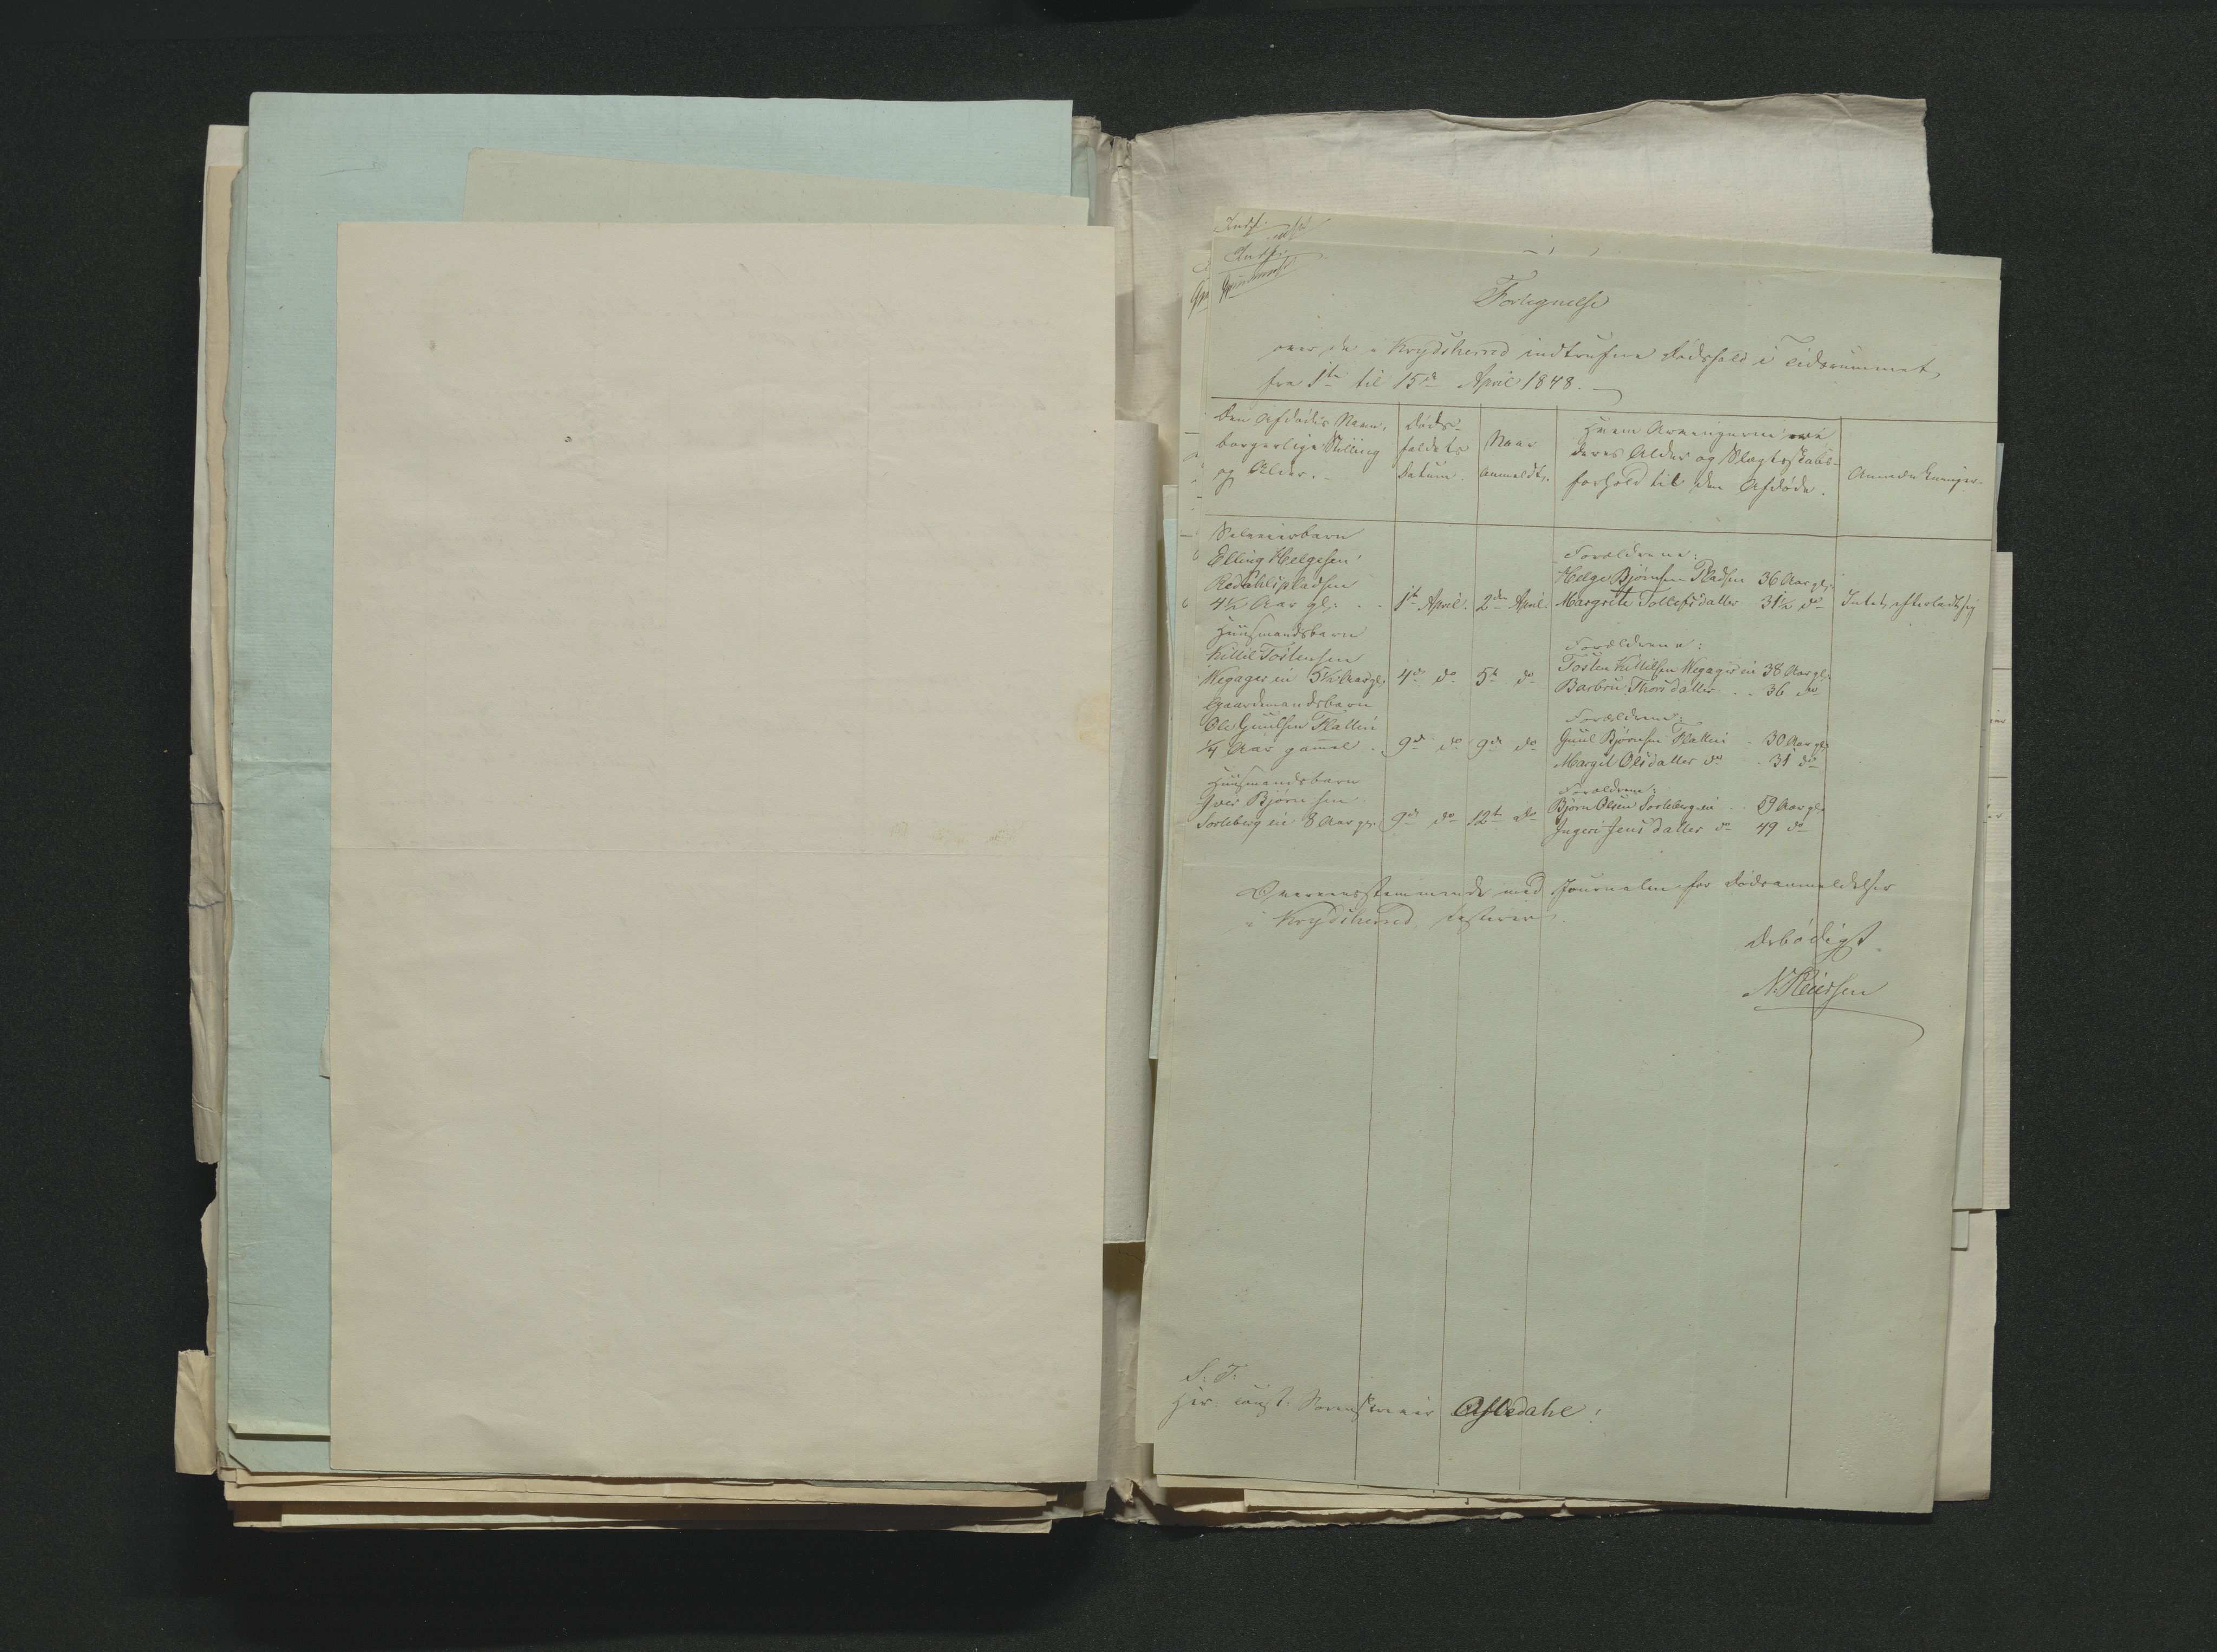 Fortegnelse
over de i Krydsherred indtrufne Dødsfald i Tidsrummet
fra 1ste til 15de April 1848.
Den Afdødes Navn,
borgerlige Stilling
og Alder.
Døds-
faldets
Datum.
Naar
anmeldt.
Hvem Arvingerne ere
deres Alder og Slægtskabs-
forhold til den Afdøde.
Anmærkninger.
Selveierbarn
Elling Helgesen
pladsen
4½ Aar gl.
1ste April.
2den April.
Forældrene:
Helge Bjørnsen Pladsen 36 Aar gl.
Margrete Tollefsdatter 31½ do
Intet efterladt sig
Huusmandsbarn
Killil Tostensen
Wegager ei 5½ Aar gl.
4de do
5te do
Forældrene:
Tosten Killilsen Wegager ei 38 Aar gl.
Barbru Thorsdatter 36 do
Gaardmandsbarn
Ole Guulsen Slatten
¼ Aar gammel
9de do
9de do
Forældrene:
Guul Bjørnsen 30 Aar gl.
Margit Olsdatter do 31 do
Huusmandsbarn
Iver Bjørnsen
Sorteberg ei 8 Aar gl.
9de do
12te do
Forældrene:
Bjørn Olsen Sorteberg ei 59 Aar gl.
Ingeri Jensdatter do 49 do
Overeensstemmende med Journalen for Dødsanmeldelser
i Krydsherred, testerer
Ærbødigst
S: T:
Hr. const. Sorenskriver Astedahl!